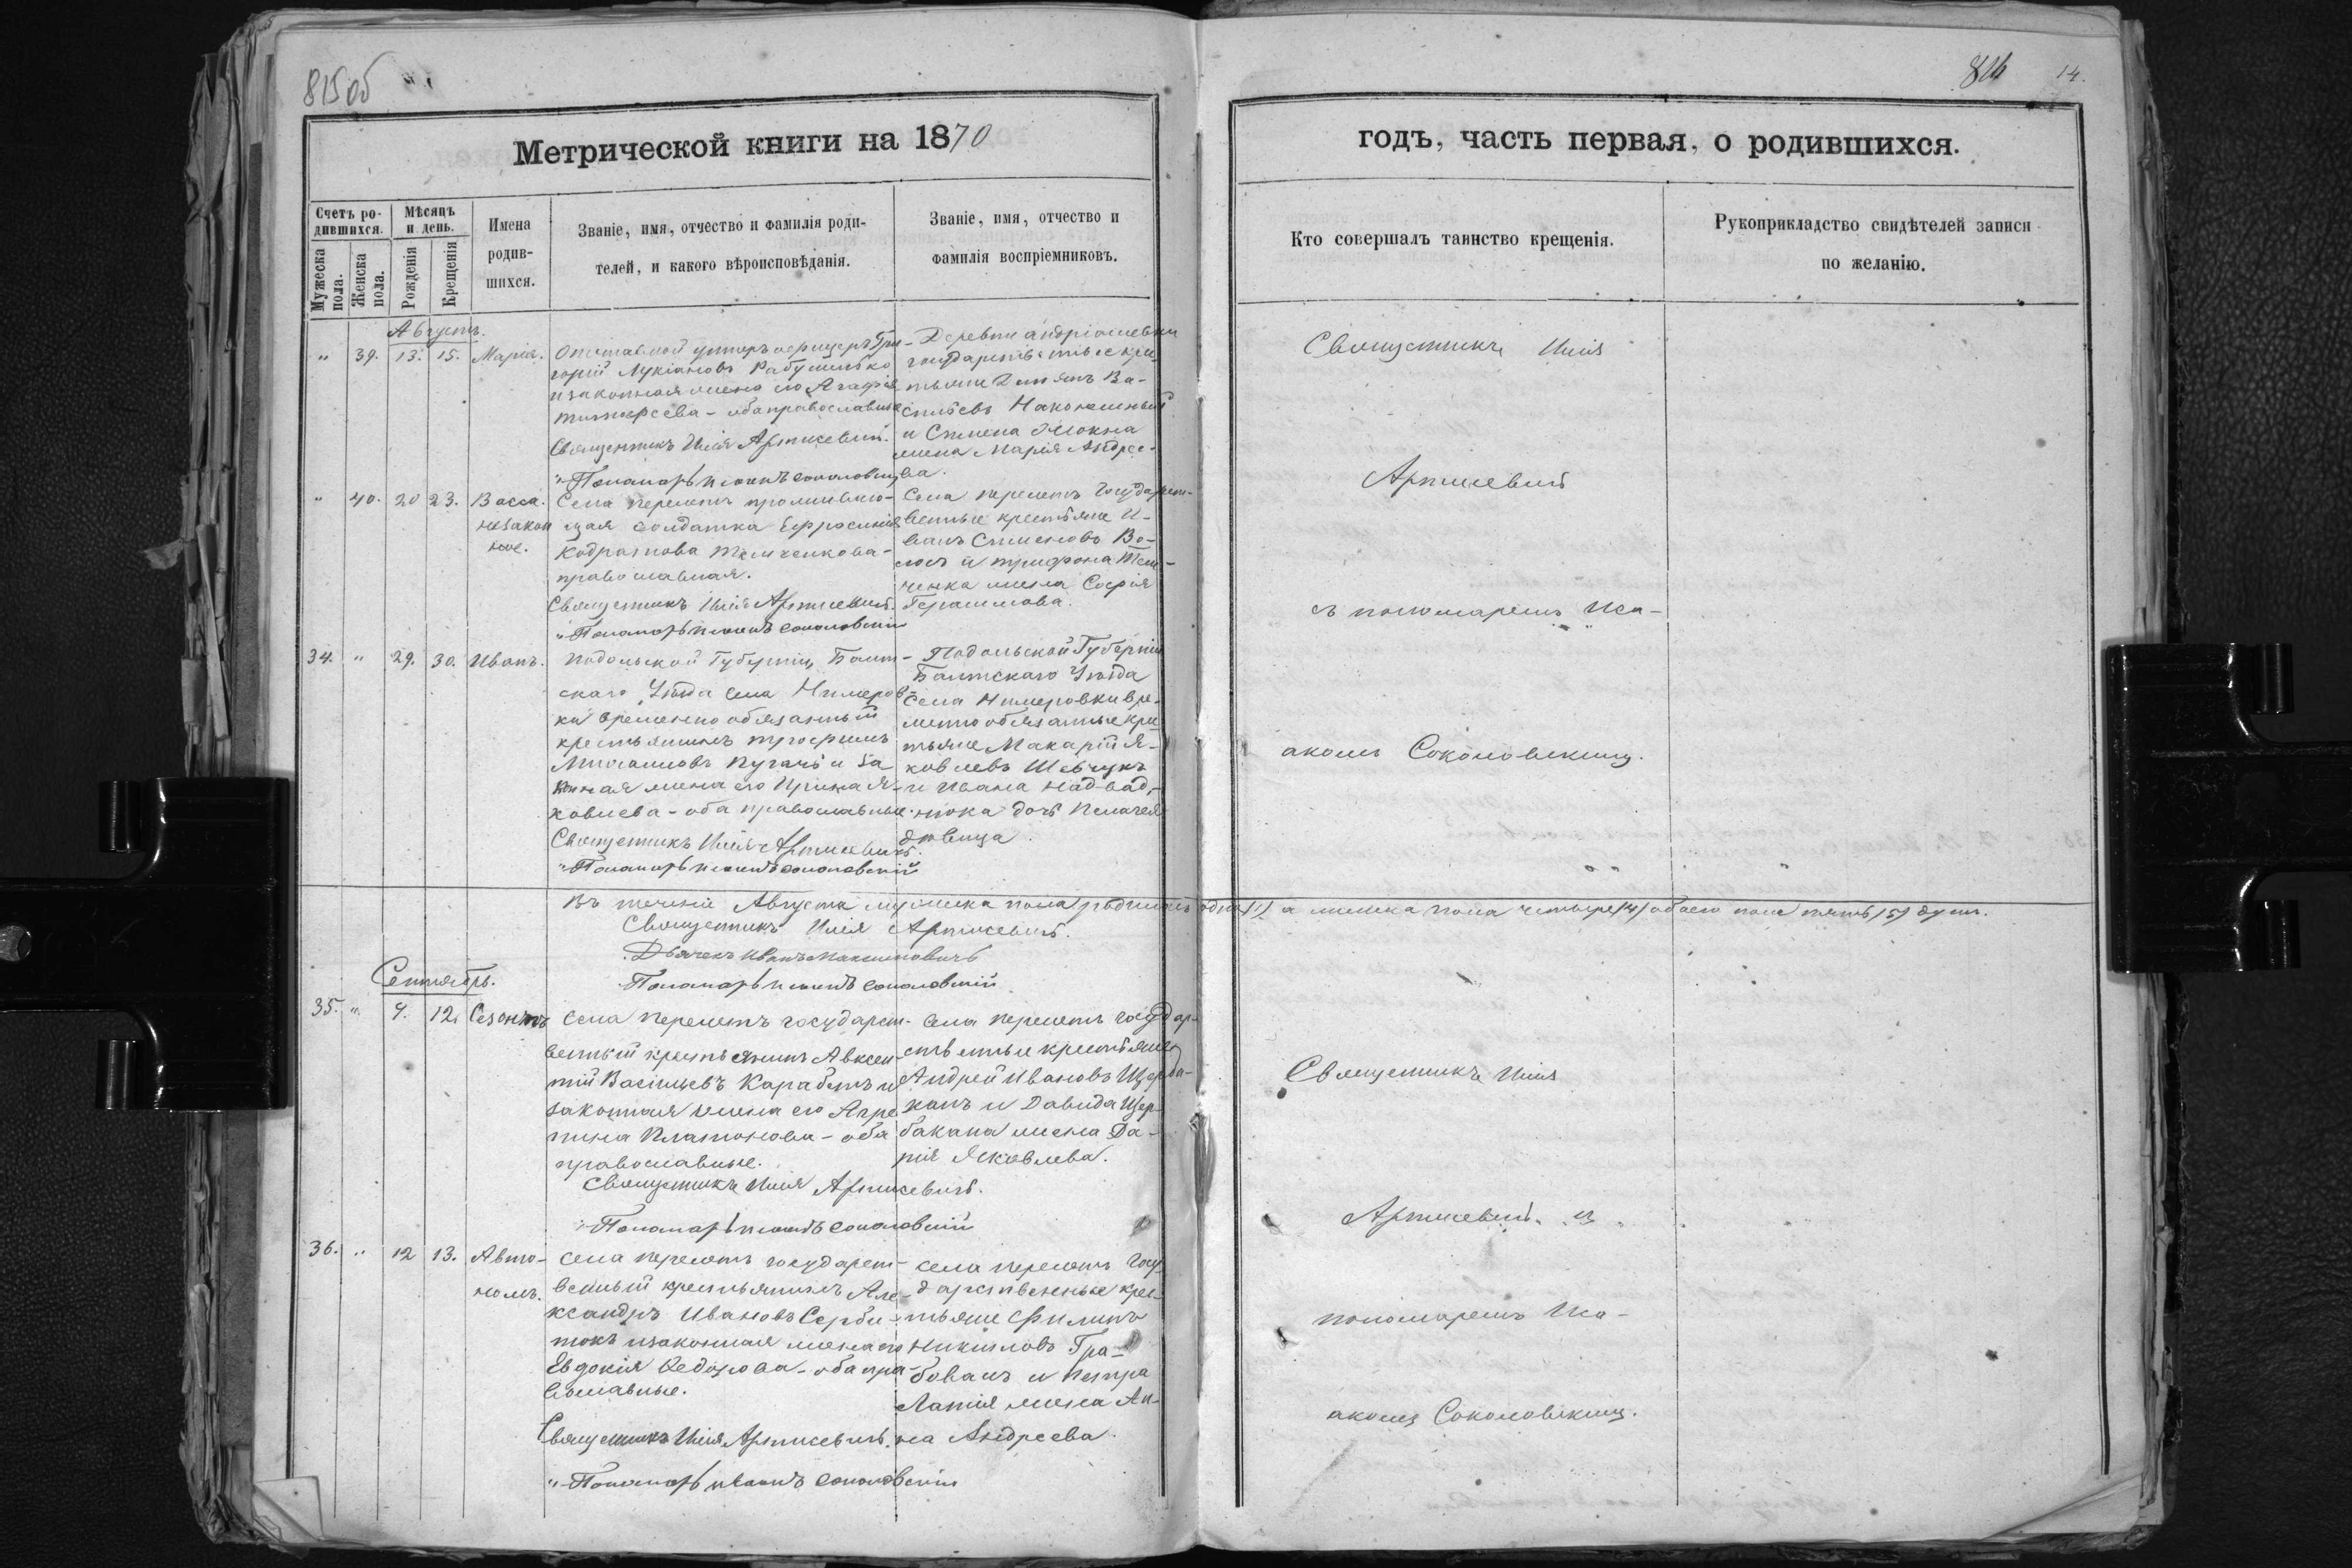 815об
816 14.
Метрической книги на 1870
годъ, часть первая, о родившихся.
Счетъ родившихся.
Мужеска пола.
Женска пола.
Мѣсяцъ и день.
Рожденія
Крещенія
Имена
родив-
шихся.
Званіе, имя, отчество и фамилія роди-
телей, и какого вѣроисповѣданія.
Званіе, имя, отчество и
фамилія воспріемниковъ.
Кто совершалъ таинство крещенія.
Рукоприкладство свидѣтелей записи
по желанію.
Августъ.
" 39. 13. 15. Марія.
Отставной унтеръ офицеръ Гри-
горій Лукіановъ
и законная жена его Агафія
Тимофеева - оба православные
Священникъ Илія Артисевичъ.
Пономарь Исаакъ Соколовскій
Деревни Андріяшевки
государственные крес-
тьяне Игнатъ Ва-
сильевъ Наконешный
и
жена Марія Андрее-
ва.
" 40. 20 23. Васса.
незакон
ное.
Села Перелетъ проживаю-
щая солдатка Ефросинія
Кодратова Темченкова-
православная.
Священникъ Илія Артисевичъ.
Пономарь Исаакъ Соколовскій
Села Перелетъ государст-
венные крестьяне И-
ванъ Сименовъ Во-
лосъ и Трифона Тем-
ченка жена Софія
Герасимова.
34. " 29. 30. Иванъ.
Подольской Губерніи, Балт-
скаго Уѣзда села Нимеров-
ки временно обязанный
крестьянинъ Трофимъ
Михаиловъ Пугачъ и за
конная жена его Ирина Я-
ковлева - оба православные.
Священникъ Илія Артисевичъ.
Пономарь Исаакъ Соколовскій
Подольской Губерніи
Балтскаго Уѣзда
села Нимеровки вре-
менно обязанные крес
тьяне Макарій Я-
ковлевъ Шевчукъ
и Ивана
дочь Пелагея
дѣвица.
Священникъ Илія
Артисевичъ
съ пономаремъ Иса-
акомъ Соколовскимъ.
Въ теченіи Августа мужеска пола родилось одна /1/, а женска пола четыре /4/ обоего пола пять /5/ душъ.
Священникъ Илія Артисевичъ.
Дьячекъ Иванъ Максимовичъ
Пономарь Исаакъ Соколовскій
Сентябрь.
35. " 12. Созонтъ
Села Перелетъ государст-
венный крестьянинъ Авксен-
тій Васильевъ Карабетъ и
законная жена его Агре
пина Платонова - оба
православные.
Священникъ Илія Артисевичъ.
Пономарь Исаакъ Соколовскій
Села Перелетъ государ-
ственные крестьяне
Андрей Ивановъ Щерба-
канъ и Давида Щер-
бакана жена Да-
рія Яковлева.
36. " 12 13. Авто-
номъ.
Села Перелетъ государст-
венный крестьянинъ Але-
ксандръ Ивановъ
и законная жена его
Евдокія Ѳедорова - оба пра-
вославные.
Священникъ Илія Артисевичъ.
Пономарь Исаакъ Соколовскій
Села Перелетъ Госу-
дарственные крес-
тьяне Филипъ
Никитовъ Гра-
бованъ и Петра
жена Ан-
на Андреева.
Священникъ Илія
Артисевичъ. съ
пономаремъ Иса-
акомъ Соколовскимъ.